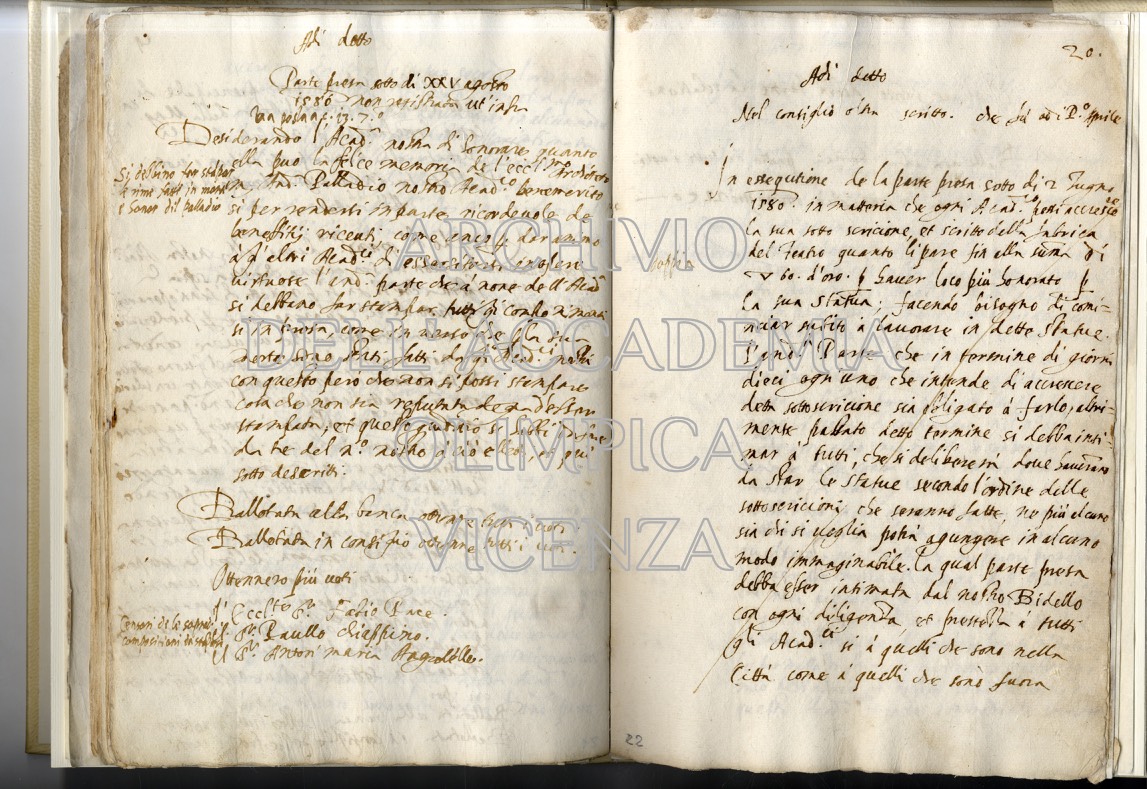 Adi detto
Parte presa sotto di XXV agosto
1580 non registrata ut infra
Desiderando l'Acad.ᵃ nostra di honorare quanto
ella puo la felice memoria de l'ecc.ᵐᵒ Architetto
m. And.ᵃ Palladio nostro Acad.ᶜᵒ benemerito
si per rendersi in parte ricordevole de
beneffitij riceuti come anco p. dar animo
à gl'altri Acad.ᶜⁱ di essercitarsi in opere
virtuose l'andᵃ parte che à nome dell'Acadᵃ
si debbano far stampar tutti gli componimenti
si in prosa, come in verso che p la sua
morte sono stati fatti da gli Acad.ᶜⁱ nostri
con questo però che non si possi stampare
cosa che non sia reputata degna d'esser
stampata, et questo giudicio si debbi
da tre del nᵒ nostro à ciò eletti, et qui
sotto descritti.
Ballotata alla banca ottenne tutti i voti
Ballotata in consiglio ottenne tutti i voti.
Ottennero più voti
l' Ecclᵗᵉ Sʳ Fabio Pace.
il Sʳ Paullo Chiappino.
il Sʳ Antonmaria Angiolello.
Si debbino far stapar
le rime fatte in morte
e honor dil palladio
Censori de le sopradᵉ
compositioni da stāpar
22
20.
Adi detto
Nel consiglio o'ltra scritto. che fù adi Pᵒ Aprile
In essegutione de la parte presa sotto di 2 Zugno
1580 in materia che ogni Acad.ᶜᵒ potti accrescere
la sua sotto scricione, et scritto della fabrica
del Teatro quanto li pare fin alla suma di
▽ 60. d'oro. p haver loco più honorato p
la sua statua; facendo bisogno di comi-
nciar subito à lavorare in dette statue.
L'andᵃ Parte che in termine di giorni
dieci ogni uno che intende di accrescere
detta sottoscricione sia obligato à farlo, altri-
mente passato detto termine si debba inti-
mar à tutti, che si delibererà dove haverano
da star le statue secondo l'ordine delle
sottoscricioni che seranno fatte, ne più alcuno
sia chi si voglia potrà agiungere in alcuno
modo immaginabile. La qual parte presa
debba esser intimata dal nostro Bidello
con ogni diligenza, et prestezza à tutti
gli Acad.ᶜⁱ si à quelli che sono nella
Città come à quelli che sono fuora
ARCHIVIO
DELL'ACCADEMIA
OLIMPICA
VICENZA